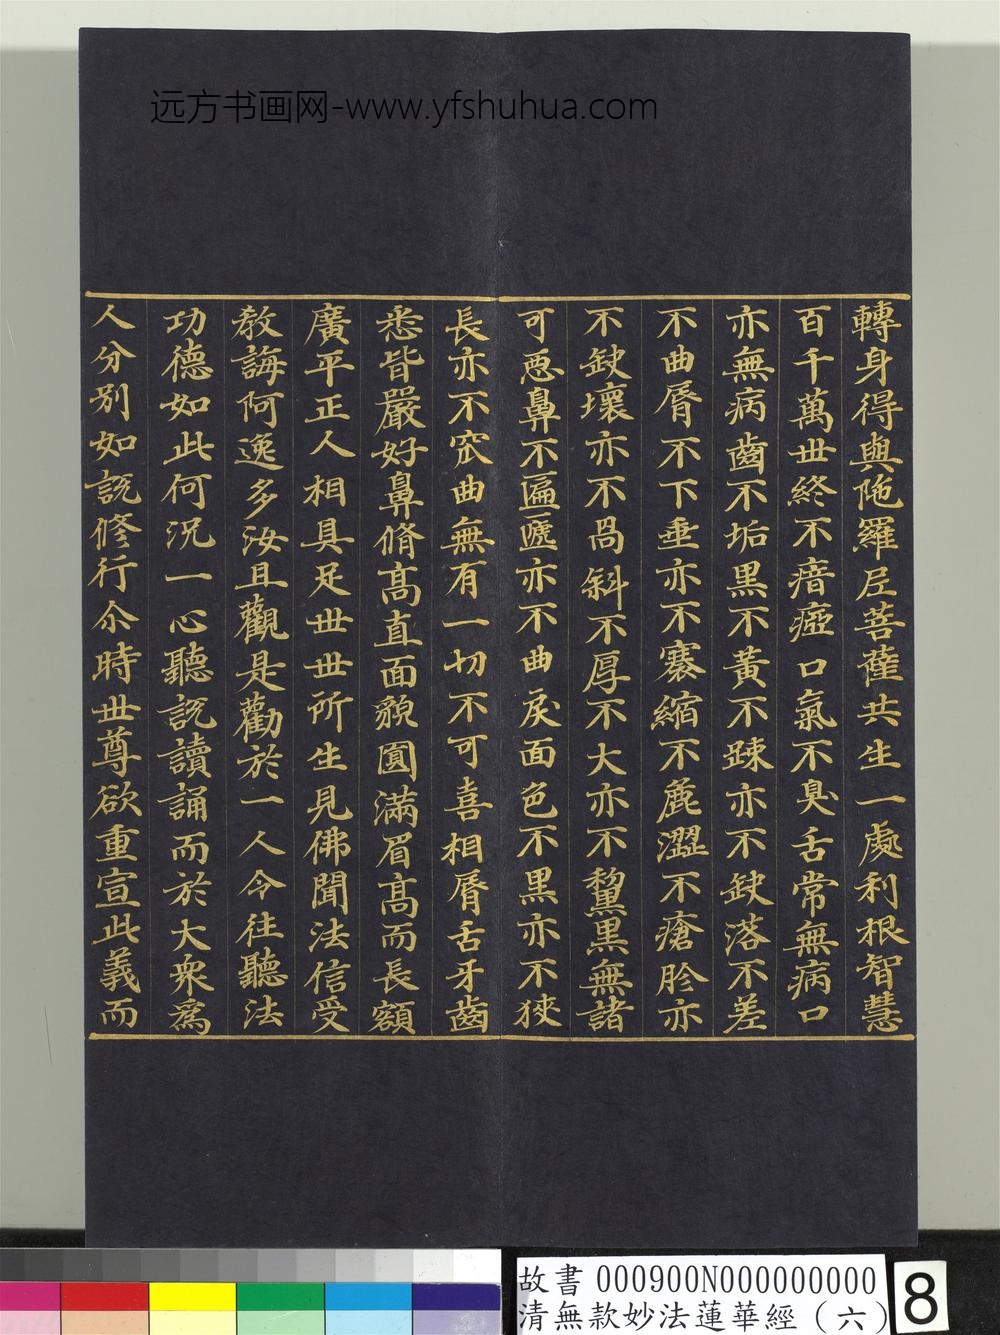 远方书画网-www.yfshuhua.com
轉身得與陁羅尼菩薩共生一處利根智慧
百千萬世終不瘖瘂口氣不臭舌常無病口
亦無病齒不垢黑不黃不踈亦不缺落不差
不曲脣不下垂亦不褰縮不麁澀不瘡胗亦
不缺壞亦不咼斜不厚不大亦不黧黑無諸
可惡鼻不匾㔸亦不曲戾面色不黑亦不狹
長亦不窊曲無有一切不可喜相脣舌牙齒
悉皆嚴好鼻脩高直面貌圓滿眉高而長額
廣平正人相具足世世所生見佛聞法信受
教誨阿逸多汝且觀是勸於一人令往聽法
功德如此何況一心聽說讀誦而於大衆為
人分別如說修行尒時世尊欲重宣此義而
故書 000900N000000000
清無款妙法蓮華經（六）
8